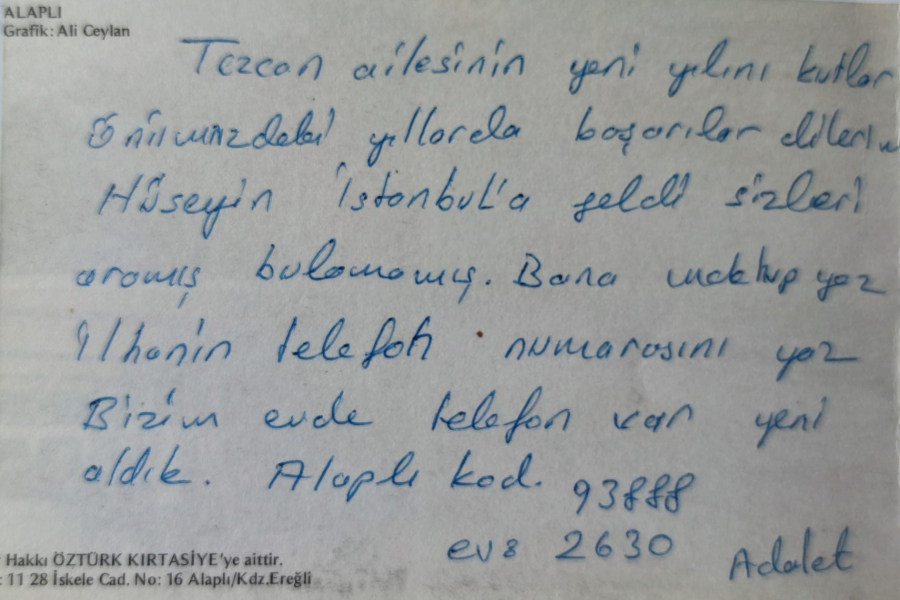 ALAPLI
Grafik: Ali Ceylan
Tezcan ailesinin yeni yılını kutlar
Önümüzdeki yıllarda başarılar dilerim
Hüseyin İstanbul'a geldi sizleri
aramış bulamamış. Bana mektup yaz
İlhanin telefon numarasını yaz
Bizim evde telefon var yeni
aldık. Alaplı kod. 93888
ev: 2630 Adalet
Hakkı ÖZTÜRK KIRTASİYE'ye aittir.
: 11 28 İskele Cad. No: 16 Alaplı/Kdz.Ereğli